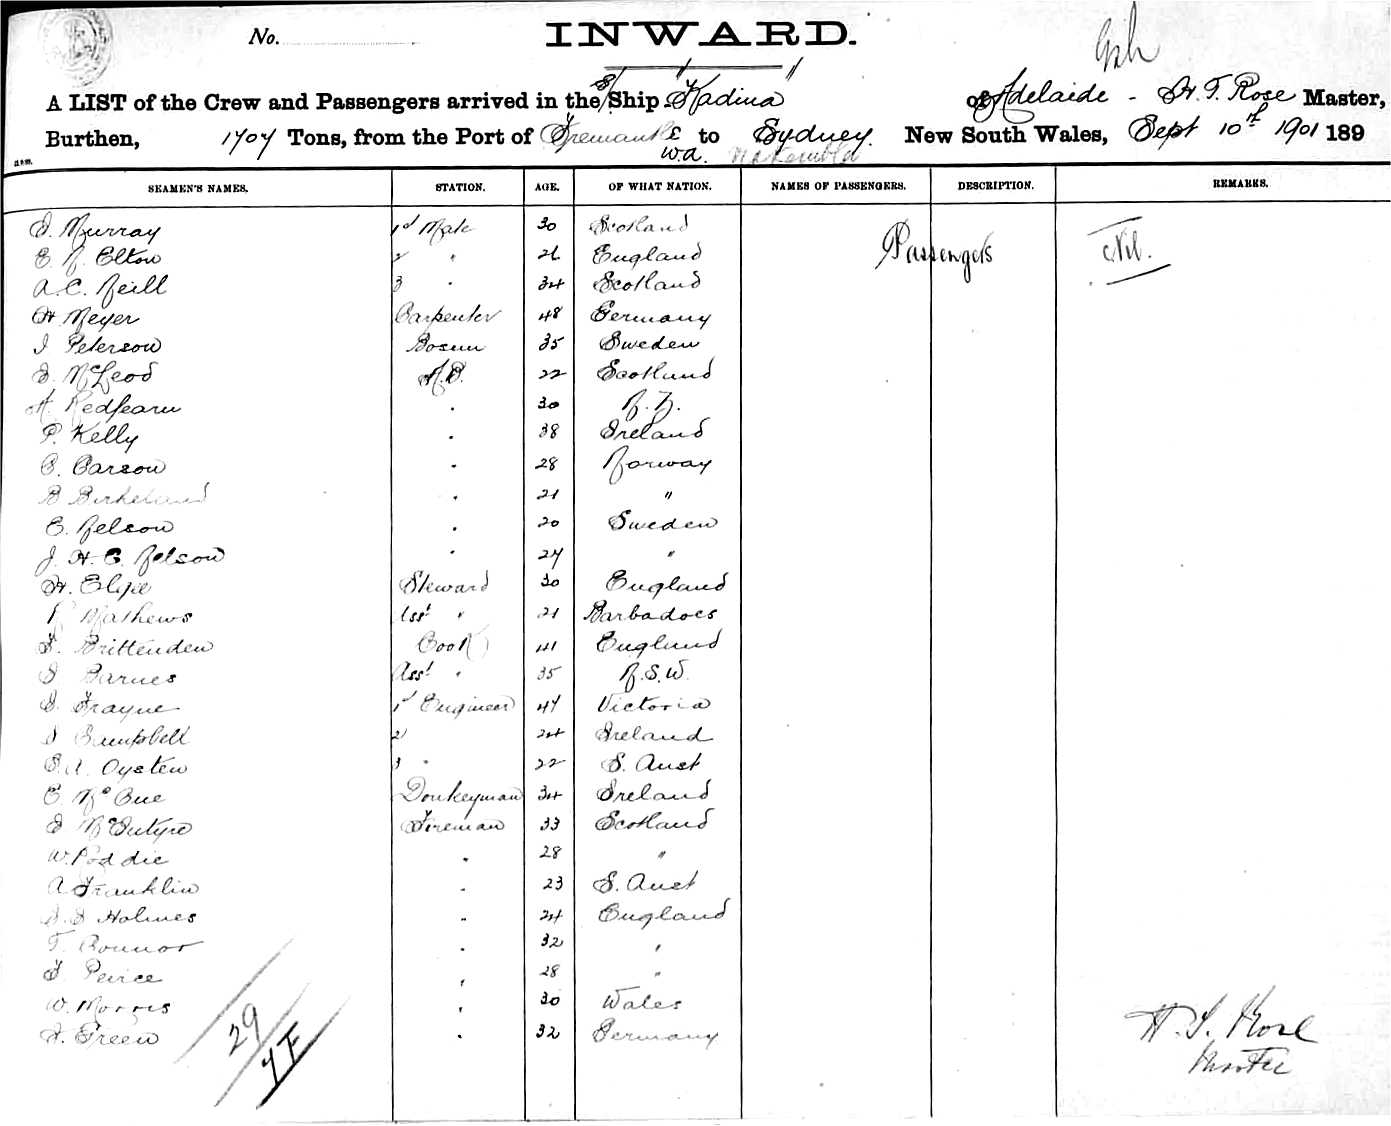 No. INWARD.
A LIST of the Crew and Passengers arrived in the S/Ship "Kadina" of Adelaide - H. T. Rose Master,
Burthen, 1707 Tons, from the Port of Fremantle to Sydney. New South Wales, Sept 10th 1901 189
W.A.
SEAMEN'S NAMES. STATION. AGE. OF WHAT NATION. NAMES OF PASSENGERS. DESCRIPTION. REMARKS.
J. Murray 1st Mate 30 Scotland Passengers Nil.
E. N. Elton 2 " 26 England
A. C. Neill 3 " 34 Scotland
H Meyer Carpenter 48 Germany
J Peterson Bosun 35 Sweden
D. McLeod A.B. 22 Scotland
A. Redfearn " 30 N. Z.
P. Kelly " 38 Ireland
C. Carson " 28 Norway
B Birkeland " 21 "
E. Nelson " 20 Sweden
J. H. C. Nelson " 27 "
H. Steward 30 England
Mathews Asst " 21 Barbadoes
F. Brittenden Cook 41 England
J Barnes Asst " 35 N.S.W.
J. Frayne 1st Engineer 47 Victoria
J Campbell 2 " 24 Ireland
S. A. Oysten 3 " 22 S. Aust
C. McCue Donkeyman 34 Ireland
D McIntyre Fireman 33 Scotland
W. Poddie " 28 "
A Franklin " 23 S. Aust
J. J Holmes " 24 England
T. Connor " 32 "
F. Peirce " 28 "
W. Morris " 30 Wales
J. Green " 32 Germany
29
H. T. Rose
Master